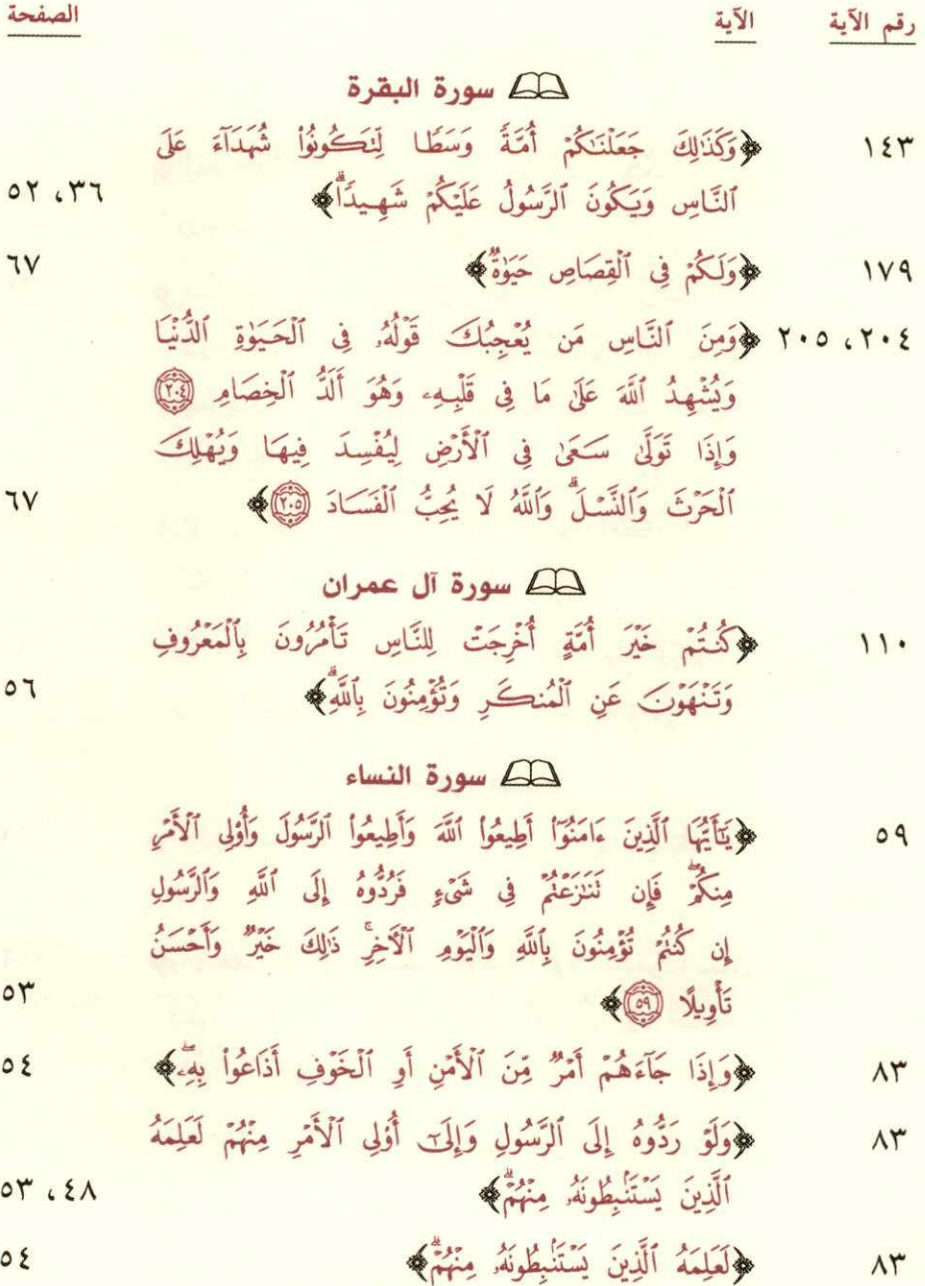 رقم الآية الآية الصفحة
سورة البقرة
١٤٣ ﴿وَكَذَٰلِكَ جَعَلْنَـٰكُمْ أُمَّةً وَسَطًا لِّتَكُونُوا۟ شُهَدَآءَ عَلَى
ٱلنَّاسِ وَيَكُونَ ٱلرَّسُولُ عَلَيْكُمْ شَهِيدًا ۗ﴾ ٣٦، ٥٢
١٧٩ ﴿وَلَكُمْ فِى ٱلْقِصَاصِ حَيَوٰةٌ﴾ ٦٧
٢٠٤، ٢٠٥ ﴿وَمِنَ ٱلنَّاسِ مَن يُعْجِبُكَ قَوْلُهُۥ فِى ٱلْحَيَوٰةِ ٱلدُّنْيَا
وَيُشْهِدُ ٱللَّهَ عَلَىٰ مَا فِى قَلْبِهِۦ وَهُوَ أَلَدُّ ٱلْخِصَامِ ٢٠٤
وَإِذَا تَوَلَّىٰ سَعَىٰ فِى ٱلْأَرْضِ لِيُفْسِدَ فِيهَا وَيُهْلِكَ
ٱلْحَرْثَ وَٱلنَّسْلَ ۗ وَٱللَّهُ لَا يُحِبُّ ٱلْفَسَادَ ٢٠٥﴾ ٦٧
سورة آل عمران
١١٠ ﴿كُنتُمْ خَيْرَ أُمَّةٍ أُخْرِجَتْ لِلنَّاسِ تَأْمُرُونَ بِٱلْمَعْرُوفِ
وَتَنْهَوْنَ عَنِ ٱلْمُنكَرِ وَتُؤْمِنُونَ بِٱللَّهِ ۗ﴾ ٥٦
سورة النساء
٥٩ ﴿يَـٰٓأَيُّهَا ٱلَّذِينَ ءَامَنُوٓا۟ أَطِيعُوا۟ ٱللَّهَ وَأَطِيعُوا۟ ٱلرَّسُولَ وَأُو۟لِى ٱلْأَمْرِ
مِنكُمْ ۖ فَإِن تَنَـٰزَعْتُمْ فِى شَىْءٍ فَرُدُّوهُ إِلَى ٱللَّهِ وَٱلرَّسُولِ
إِن كُنتُمْ تُؤْمِنُونَ بِٱللَّهِ وَٱلْيَوْمِ ٱلْـَٔاخِرِ ۚ ذَٰلِكَ خَيْرٌ وَأَحْسَنُ
تَأْوِيلًا ٥٩﴾ ٥٣
٨٣ ﴿وَإِذَا جَآءَهُمْ أَمْرٌ مِّنَ ٱلْأَمْنِ أَوِ ٱلْخَوْفِ أَذَاعُوا۟ بِهِۦ ۖ﴾ ٥٤
٨٣ ﴿وَلَوْ رَدُّوهُ إِلَى ٱلرَّسُولِ وَإِلَىٰٓ أُو۟لِى ٱلْأَمْرِ مِنْهُمْ لَعَلِمَهُ
ٱلَّذِينَ يَسْتَنۢبِطُونَهُۥ مِنْهُمْ ۗ﴾ ٤٨، ٥٣
٨٣ ﴿لَعَلِمَهُ ٱلَّذِينَ يَسْتَنۢبِطُونَهُۥ مِنْهُمْ ۗ﴾ ٥٤